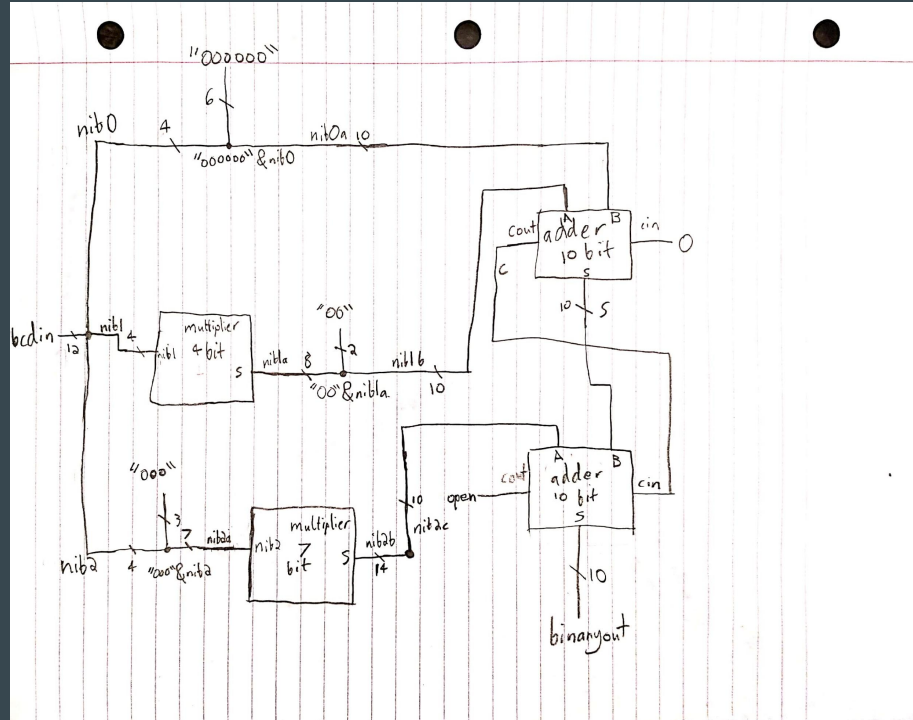 "000000"
6
nib0
4
nib0a 10
"000000" & nib0
cout
A
B
adder
10 bit
S
cin
0
C
10
S
bcdin
12
nib1
4
nib1
multiplier
4 bit
S
nib1a
8
"00"
2
"00" & nib1a
nib1b
10
"000"
3
7
nib2a
nib2
4
"000" & nib2
nib2
multiplier
7
bit
S
nib2b
14
10
nib2c
open
cout
A
B
adder
10 bit
S
cin
10
binaryout